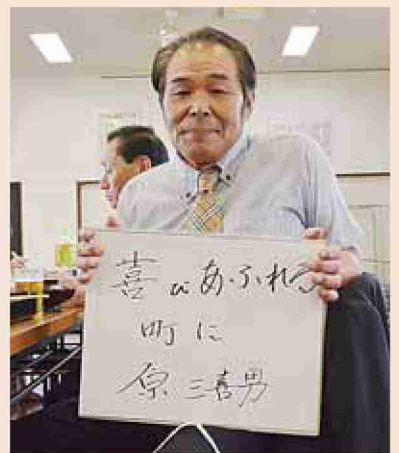 喜びあふれる
町に
原 三喜男